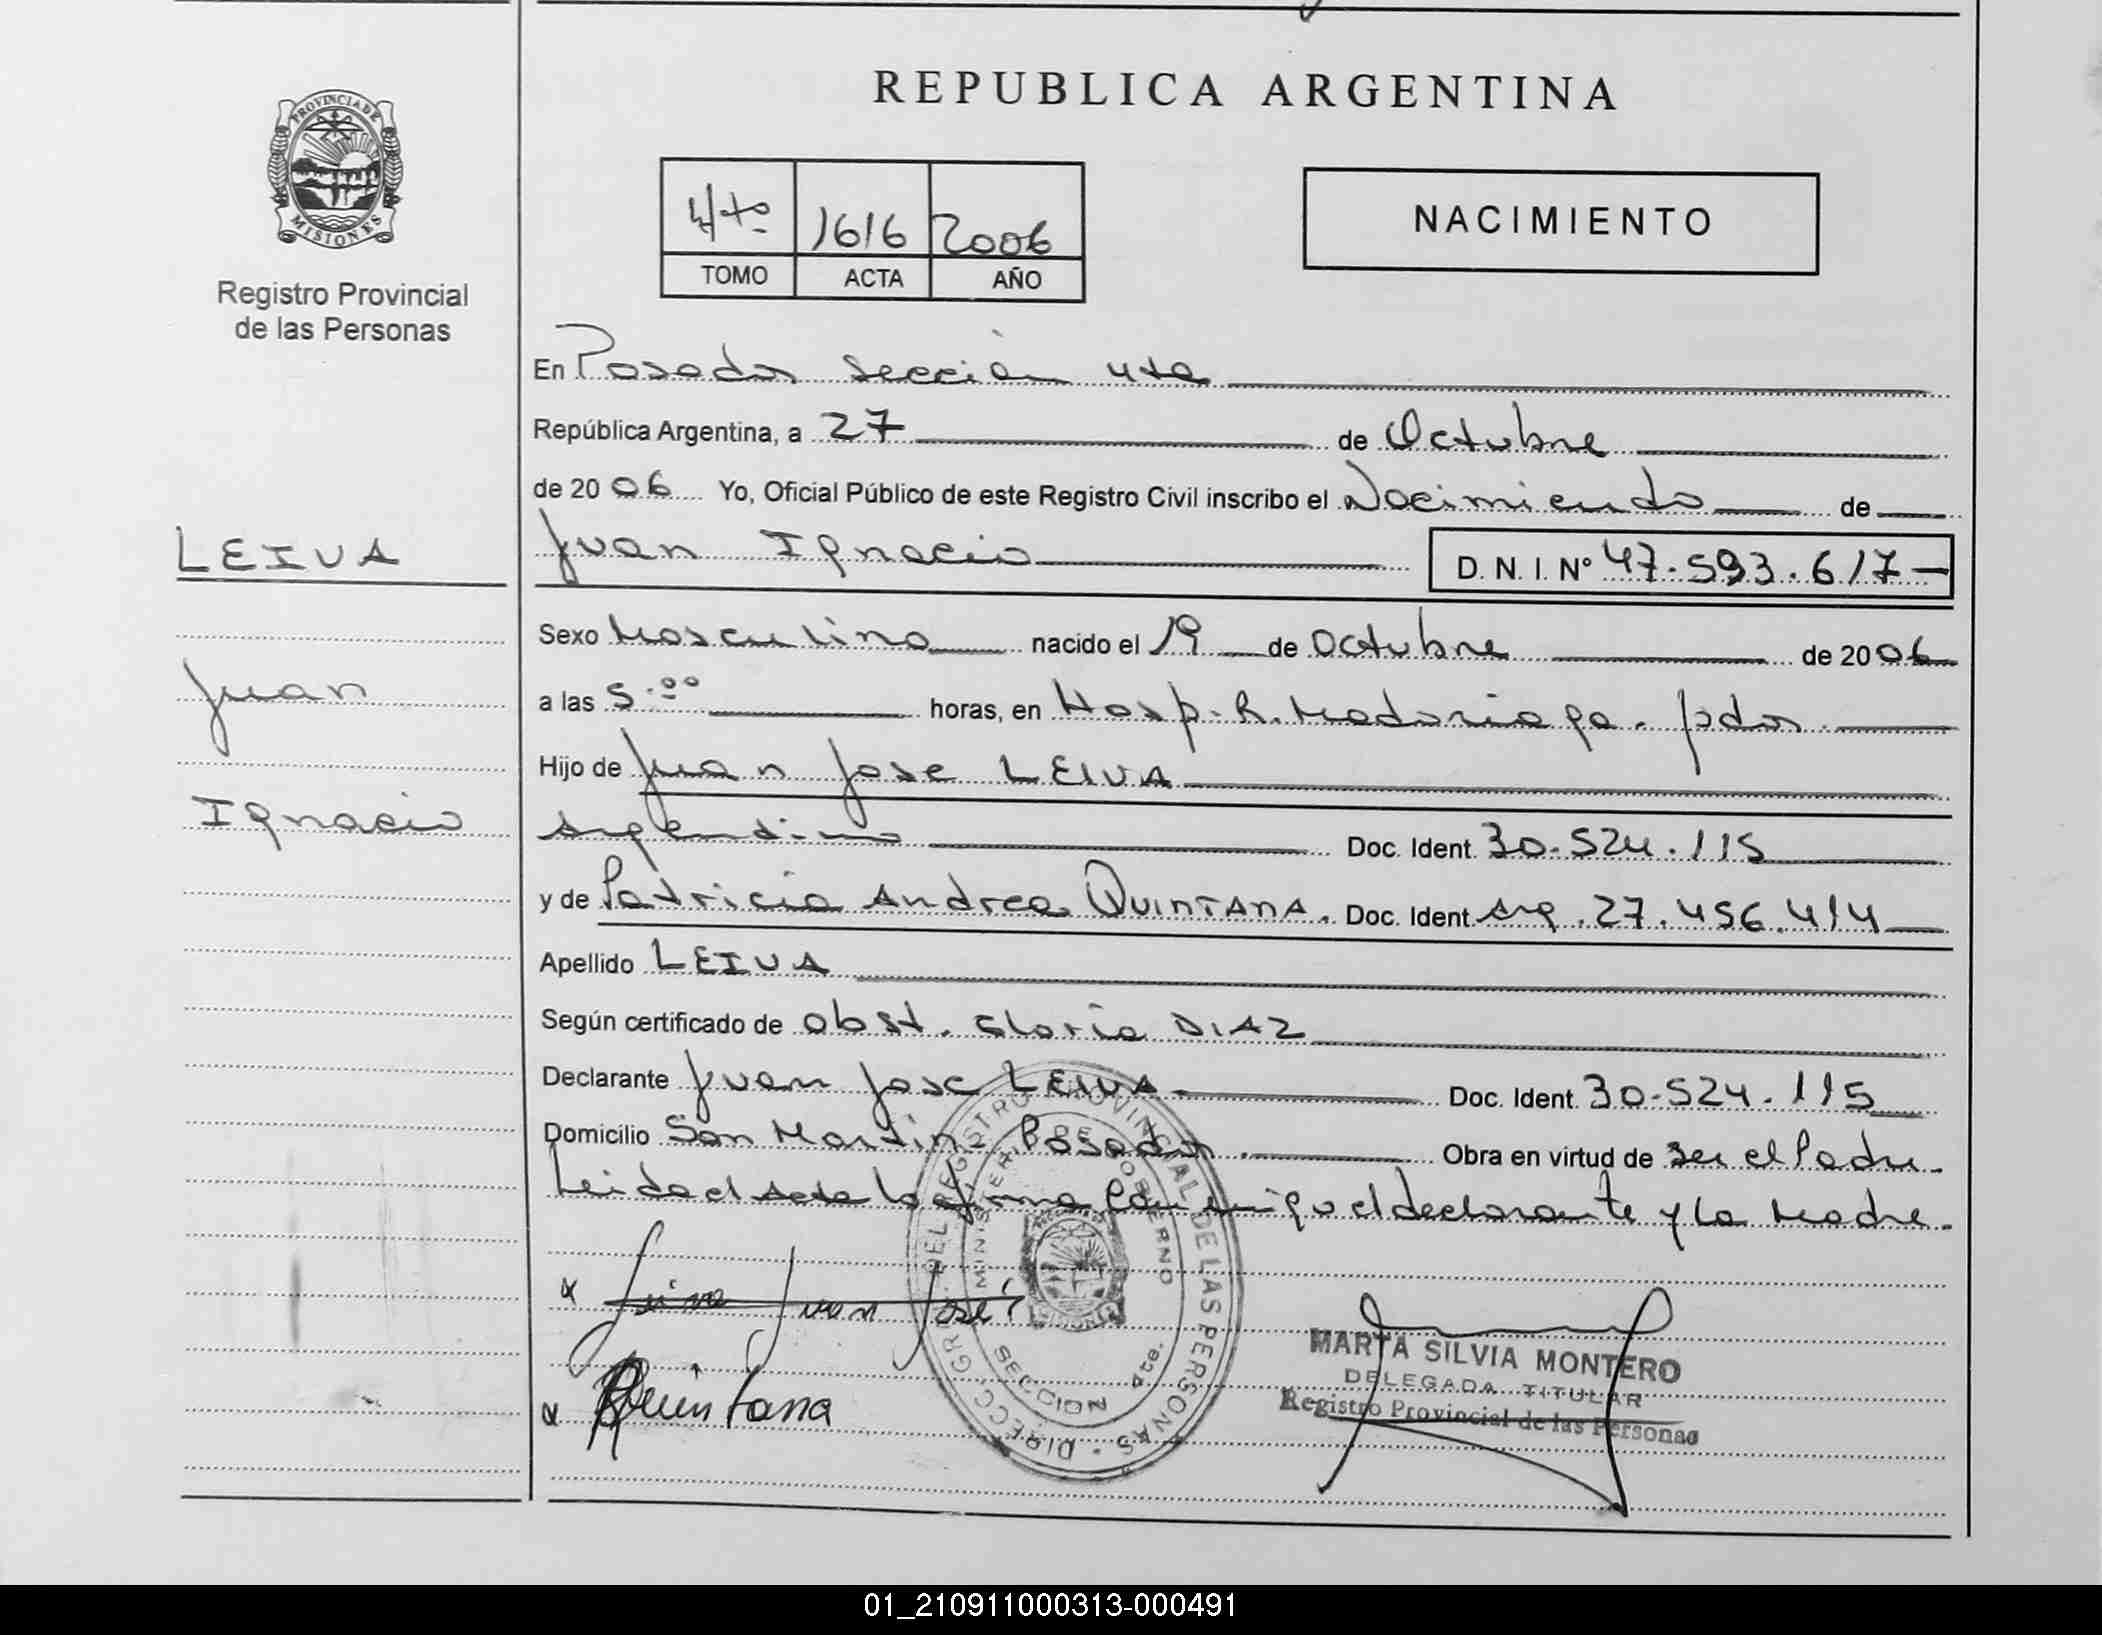 REPUBLICA ARGENTINA
PROVINCIA DE
MISIONES
Registro Provincial
de las Personas
4to 1616 2006
TOMO ACTA AÑO
NACIMIENTO
En Posadas sección 4ta
República Argentina, a 27 de Octubre
de 2006 Yo, Oficial Público de este Registro Civil inscribo el Nacimiento de
LEIVA
Juan Ignacio D.N.I. Nº 47.593.617
Sexo Masculino nacido el 19 de Octubre de 2006
Juan
a las 5.00 horas, en Hosp. R. Madariaga. Pdas.
Hijo de Juan Jose LEIVA
Ignacio
Argentino Doc. Ident. 30.524.115
y de Patricia Andrea QUINTANA. Doc. Ident. Arg. 27.456.414
Apellido LEIVA
Según certificado de Obst. Gloria DIAZ
Declarante Juan Jose LEIVA Doc. Ident. 30.524.115
Domicilio San Martin Posadas. Obra en virtud de ser el Padre.
Leida el acta la firma con migo el declarante y la Madre.
Leiva Juan José
Quintana
DIRECC. GRAL. DEL REGISTRO PROVINCIAL DE LAS PERSONAS
MINISTERIO DE GOBIERNO
SECCION 4ta.
MARTA SILVIA MONTERO
DELEGADA TITULAR
Registro Provincial de las Personas
01_210911000313-000491